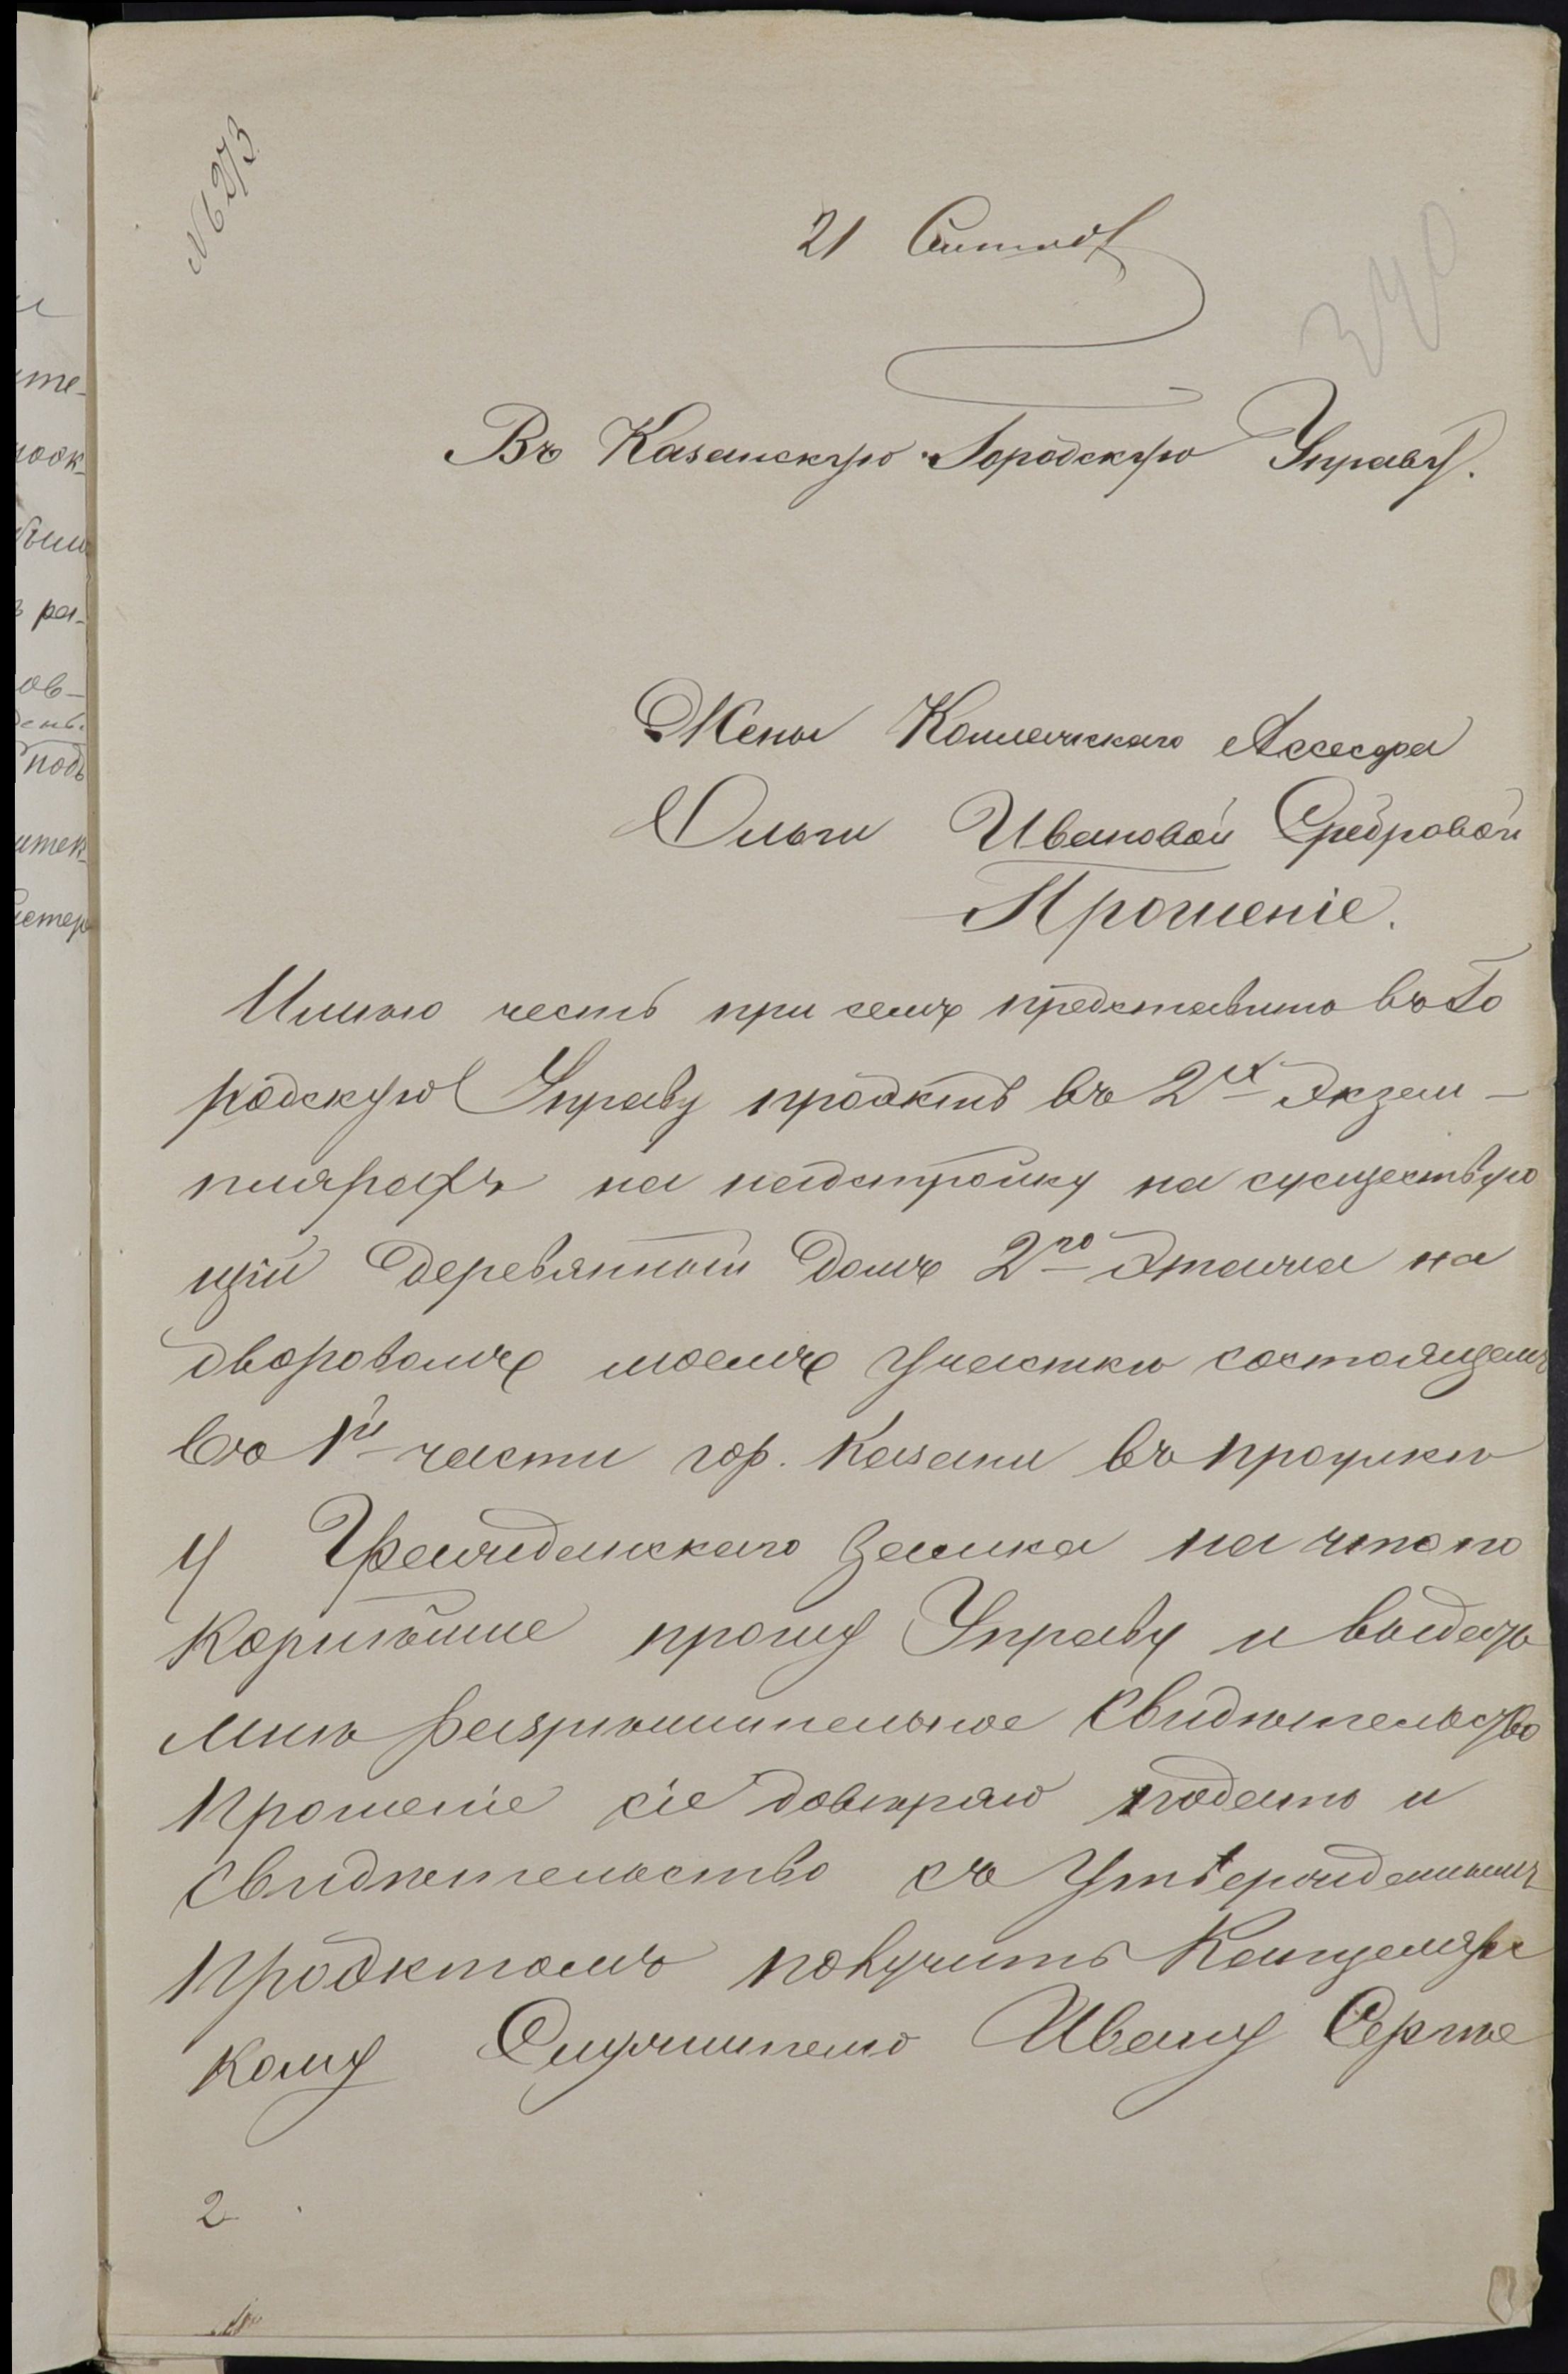 № 6273
21 Сентяб
340
Въ Казанскую Городскую Управу.
Жены Коллежскаго Ассесора
Ольги Ивановой Сребровой
Прошеніе.
Имѣю честь при семъ представить въ Го
родскую Управу проэктъ въ 2х экзем-
плярахъ на надстройку на существую
щій деревянный домъ 2го этажа на
дворовомъ моемъ участкѣ состоящемъ
во 1й части гор. Казани въ проулкѣ
у Гражданскаго Замка на что по
корнѣйше прошу Управу и выдать
мнѣ разрѣшительное свидѣтельство
Прошеніе сіе довѣряю подать и
свидѣтельство съ утвержденнымъ
проэктомъ получить Канцелярс
кому Служителю Ивану Сергѣе
2